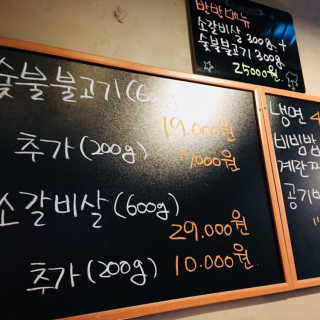 반반메뉴
소갈비살 300g +
숯불불고기 300g
25000원
숯불불고기(6
19.000원
추가(200g)
7,000원
소갈비살(600g)
29.000원
추가(200g) 10.000원
냉면 4
비빔밥
계란찌
공기밥